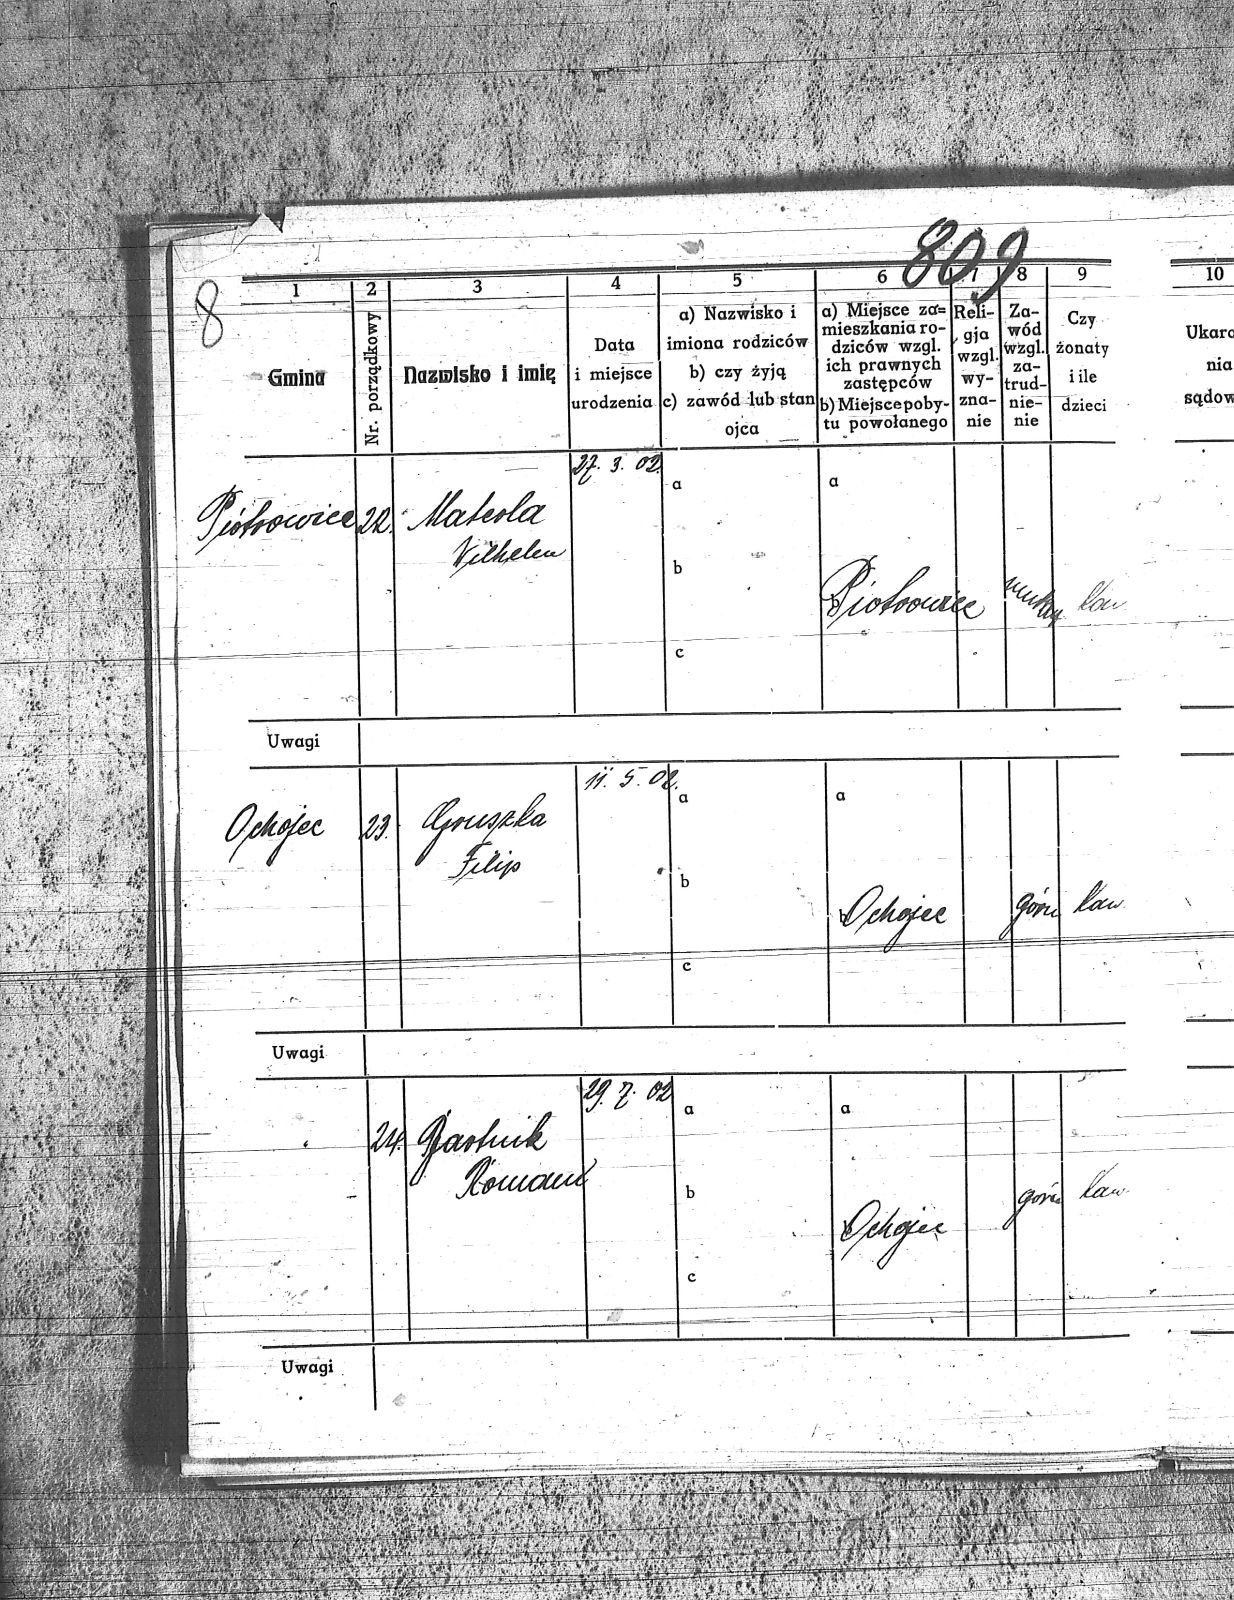 809
8
1
2
3
4
5
6
7
8
9
10
Gmina
Nr. porządkowy
Nazwisko i imię
Data
i miejsce
urodzenia
a) Nazwisko i
imiona rodziców
b) czy żyją
c) zawód lub stan
ojca
a) Miejsce za=
mieszkania ro-
dziców wzgl.
ich prawnych
zastępców
b) Miejsce poby-
tu powołanego
Reli-
gja
wzgl.
wy-
zna-
nie
Za-
wód
wzgl.
za-
trud-
nie-
nie
Czy
żonaty
i ile
dzieci
Ukara
nia
sądow
Piotrowice
22.
Materla
Vilhelm
27. 3. 02.
a
b
c
a
b
Piotrowice
kaw
Uwagi
Ochojec
23.
Gruszka
Filip
11. 5. 02.
a
b
c
a
b
Ochojec
górn
kaw.
Uwagi
24.
Roman
29. 7. 02
a
b
c
a
b
Ochojec
górn
kaw.
Uwagi